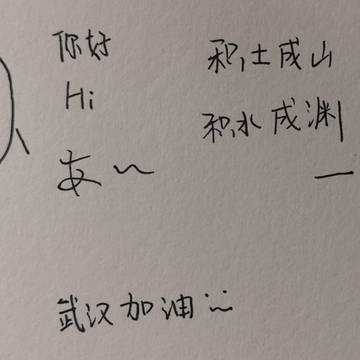 你好
Hi
积土成山
积水成渊
武汉加油